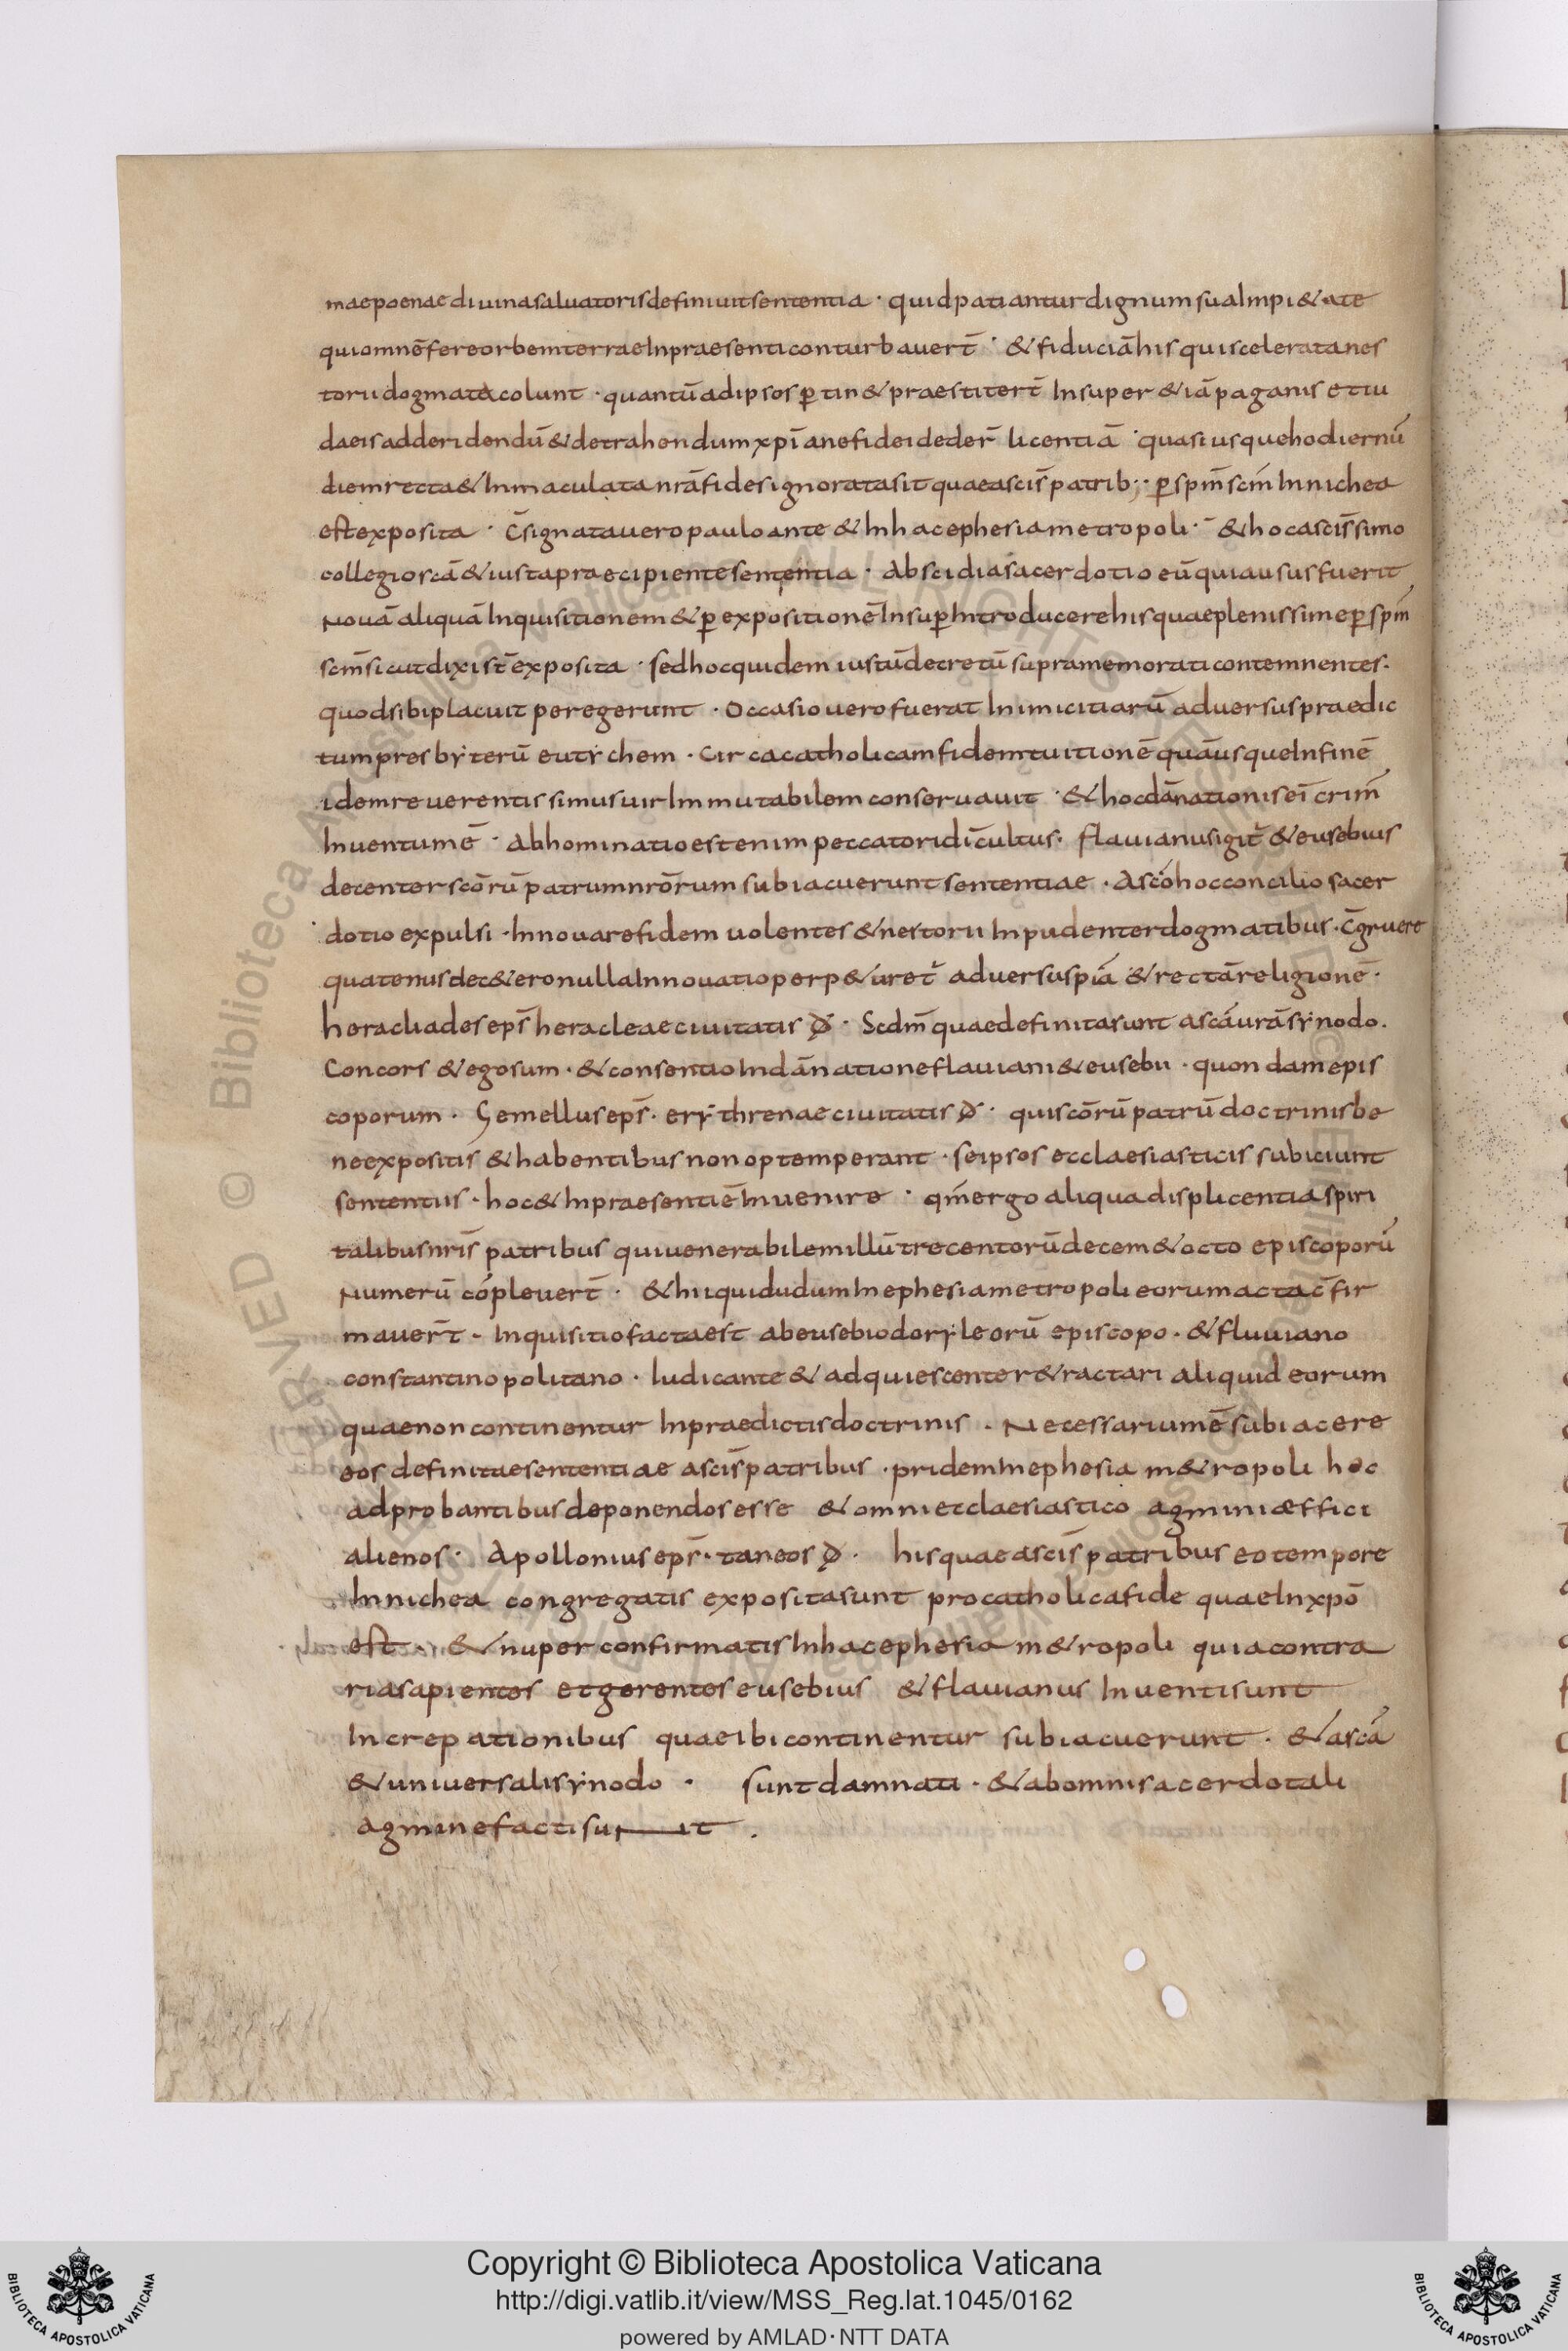 mae poenae diuina saluatoris definiuit sententia · quid patiantur dignum sua Impi&ate
qui omnē fere orbem terrae In praesenti conturbauert̄ · & fiduciā his qui scelerata nes
torii dogmata colunt · quantū ad ipsos ꝑtin& praestitert̄ Insuper &iā paganis et iu
daeis ad deridendū & detrahendum xp̄iane fidei deder̄ licentiā · quasi usque hodiernū
diem recta & Inmaculata nr̄a fides ignorata sit quae a sc̄is patrib; · ꝑ sp̄m sc̄m In nichea
est exposita · c̄signata uero paulo ante & In hac ephesia metropoli · & hoc a sc̄issimo
collegio rcā & iusta praecipiente sententia · Abscidi a sacerdotio eū qui ausus fuerit
Nouā aliquā Inquisitionem & ꝑ expositionē Insuꝑ Introducere his quae plenissime ꝑ sp̄m
sc̄m sicut dixi st̄ exposita · sed hoc quidem iustū decretū supra memorati contemnentes ·
quod sibi placuit peregerunt · Occasio uero fuerat Inimicitiarū aduersus praedic
tum presbyterū eutychem · Circa catholicam fidem tuitionē quā usque In finē
idem reuerentissimus uir Immutabilem conseruauit · & hoc dānationis eī crim̄
Inuentum ē · Abhominatio est enim peccatori dī cultus · flauianus igit̄ & eusebius
decenter scōrū patrum nrōrum subiacuerunt sententiae · A scō hoc concilio sacer
dotio expulsi · Innouare fidem uolentes & nestorii Inpudenter dogmatibus · c̄gruere
quatenus dec&ero nulla Innouatio perp&uret̄ aduersus piā & rectā religionē ·
heracliades ep̄s heracleae ciuitatis đ · Scdm̄ quae definita sunt a scā urā synodo ·
Concors & ego sum · & consentio In dānatione flauiani & eusebii · quondam epis
coporum · Gemellus ep̄s · erythrenae ciuitatis đ · qui scōrū patrū doctrinis be
ne expositis & habentibus non optemperant · seipsos ecclaesiasticis subiciunt
sententiis · hoc & In praesenti ē Inuenire · qm̄ ergo aliqua displicentia spiri
talibus nr̄is patribus qui uenerabilem illū trecentorū decem & octo episcoporū
Numerū cōpleuert̄ · & hii qui dudum In ephesia metropoli eorum acta c̄fir
mauert̄ · Inquisitio facta est ab eusebio doryleorū episcopo · & fluuiano
constantinopolitano · Iudicante & adquiescenter &ractari aliquid eorum
quae non continentur In praedictis doctrinis · Necessarium ē subiacere
eos definitae sententiae a sc̄is patribus · pridem In ephesia m&ropoli hoc
adprobantibus deponendos esse & omni ecclaesiastico agmini æffici
alienos · Apollonius ep̄s · taneos đ · his quae a sc̄is patribus eo tempore
In nichea congregatis exposita sunt pro catholica fide quae In xp̄o
est · & nuper confirmatis In hac ephesia m&ropoli quia contra
ria sapientes et gerentes eusebius & flauianus Inuenti sunt
Increpationibus quae ibi continentur subiacuerunt · & a scā
& uniuersali synodo · sunt damnati · & ab omni sacerdotali
agmine facti sunt ·
Copyright © Biblioteca Apostolica Vaticana
http://digi.vatlib.it/view/MSS_Reg.lat.1045/0162
powered by AMLAD·NTT DATA
BIBLIOTECA APOSTOLICA VATICANA
BIBLIOTECA APOSTOLICA VATICANA